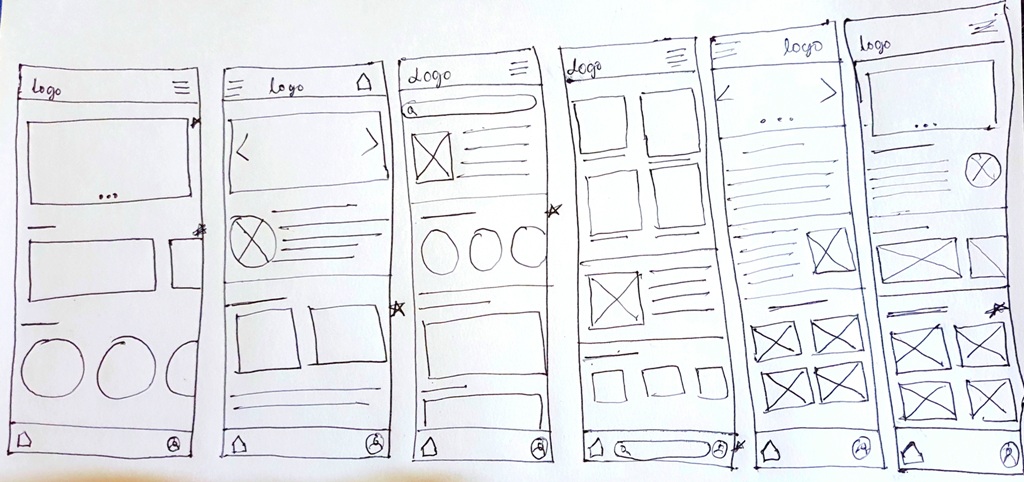 Logo
logo
Logo
Logo
logo
logo